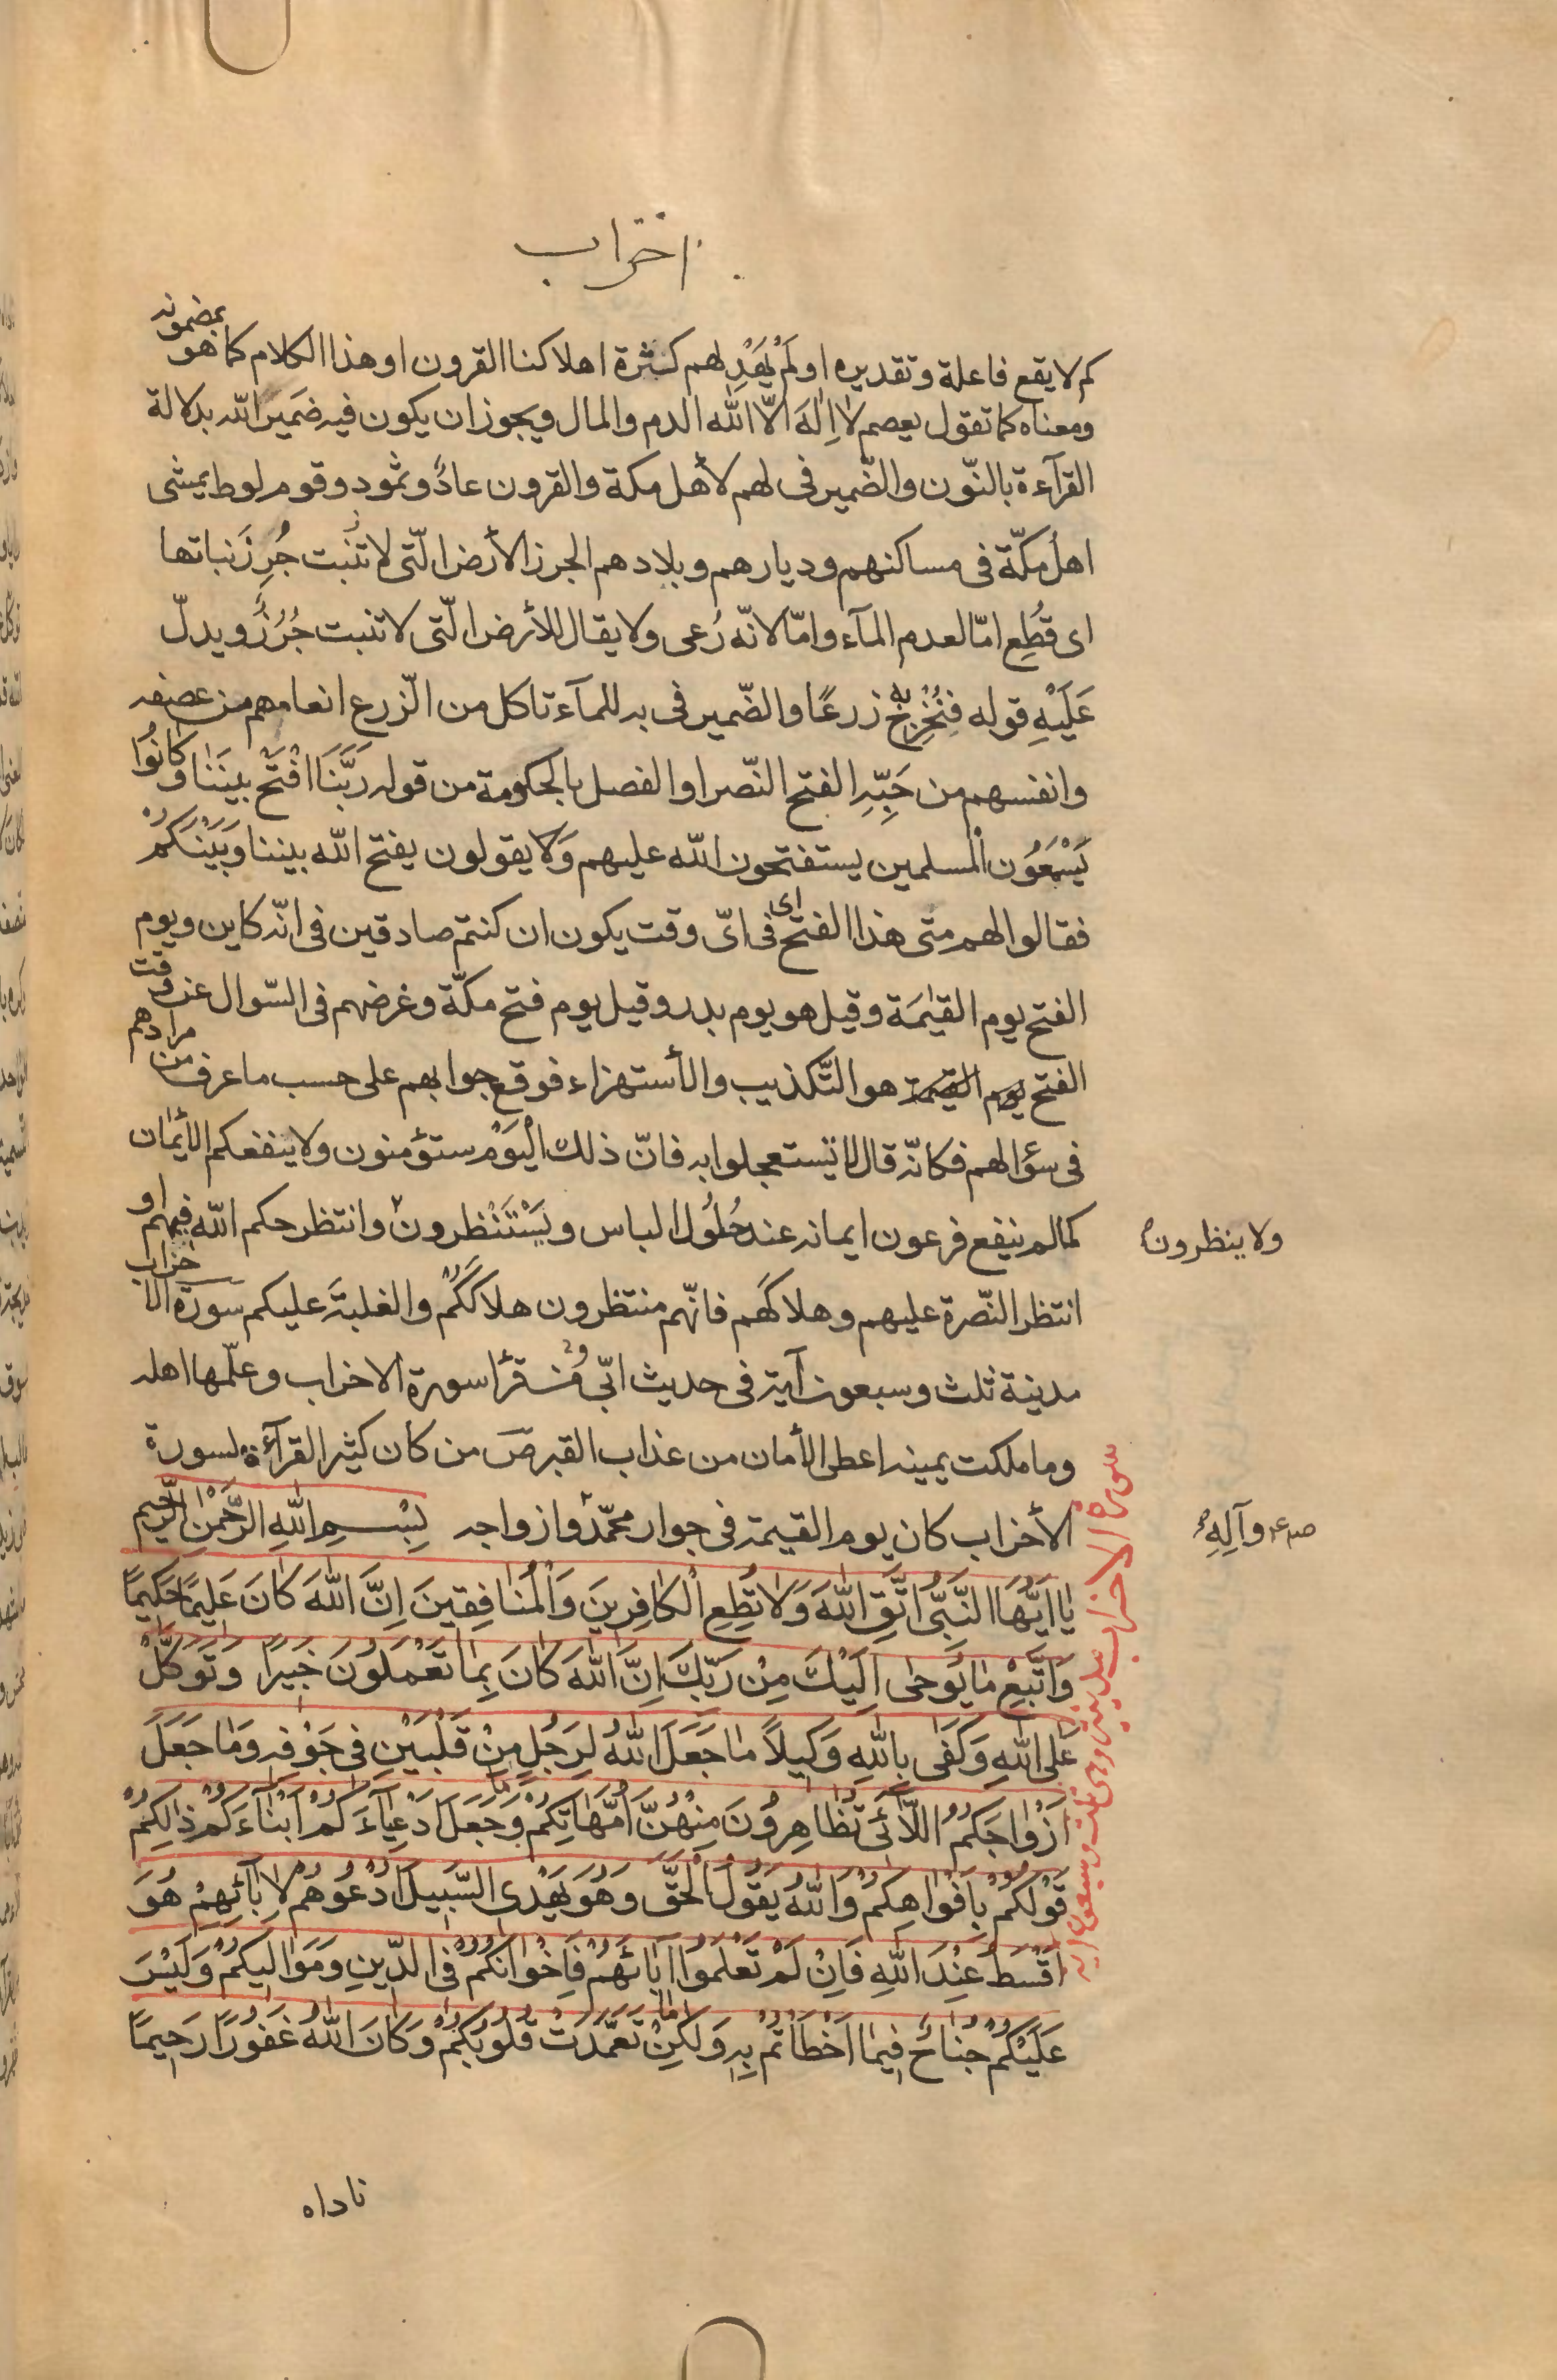 اخراب
كم لا يقع فاعلة وتقديره اولم يَهْدِ لهم كثرة اهلاكنا القرون او هذا الكلام كما هو بمضمونه
ومعناه كما تقول يعصم لا اِلٰهَ الّا الله الدم والمال ويجوز ان يكون فيه ضمير الله بدلالة
القرآءة بالنّون والضّمير فى لهم لأهل مكة والقرون عاد وثمود وقوم لوط يمشى
اهل مكّة فى مساكنهم وديارهم وبلادهم الجرز الأرض الّتى لا تنبت جُرِزَ نباتها
اى قُطِع امّا لعدم المآء وامّا لانّه رُعى ولا يقال للأرض الّتى لا تنبت جُرُزٌ ويدلّ
عَلَيْهِ قوله فنُخْرِجُ به زرعًا والضّمير فى به للمآء تاكل من الزّرع انعامهم من عصفه
وانفسهم من حَبِّهِ الفتح النّصر او الفصل بالحكومة من قوله رَبَّنَا افْتَحْ بيننا وكانُوا
يَسْمَعُون المسلمين يستفتحون الله عليهم وَلا يقولون يفتح الله بيننا وَبَيْنَكُمْ
فقالوا لهم متى هذا الفتح اى فى اىّ وقت يكون ان كنتم صادقين فى انّه كاين ويوم
الفتح يوم القيٰمَة وقيل هو يوم بدر وقيل يوم فتح مكّة وغرضهم فى السّوال عن وقت
الفتح يوم القيمة هو التّكذيب والأستهزاء فوقع جوابهم على حسب ما عرف من مرادهم
فى سؤالهم فكانّه قال لا تستعجلوا به فانّ ذلك اليَوْم ستؤمنون ولا ينفعكم الأيمان
كما لم ينفع فرعون ايمانه عند حُلُول الباس ويَسْتَنْظرون وانتظر حكم الله فيهم او
ولا ينظرون
انتظر النّصرة عليهم وهلاكَهم فانّهم منتظرون هلاككُمْ والغلبَة عليكم سورة الاخراب
مدينة ثلث وسبعون آية فى حديث ابّى ومن قرأ سورة الاخراب وعلّمها اهله
وما ملكت يمينه اعطى الأمان من عذاب القبر صَ من كان كثير القرآءة لسورة
الأخراب كان يوم القيمة فى جوار محمّد وازواجه بِسْمِ اللهِ الرَّحْمٰنِ الرَّحِيمِ
صم وآلِهِ
سورة الاخراب مدينة وهى ثلث وسبعون اية
يٰا اَيُّهَا النَّبِىُّ اتَّقِ اللهَ وَلا تُطِعِ الْكافِرِينَ وَالْمُنافِقينَ اِنَّ اللهَ كانَ عَليمًا حَكيمًا
وَاتَّبِعْ مٰا يُوحٰى اِلَيْكَ مِنْ رَبِّكَ اِنَّ اللهَ كانَ بِمٰا تَعْمَلُونَ خَبيرًا وَتَوَكَّلْ
عَلَى اللهِ وَكَفٰى بِاللهِ وَكيلاً مٰا جَعَلَ اللهُ لِرَجُلٍ مِنْ قَلْبَيْنِ فى جَوْفِهِ وَمٰا جَعَلَ
اَزْوٰاجَكُمُ اللّٰائى تُظٰاهِرُونَ مِنْهُنَّ اُمَّهٰاتِكُمْ وَمٰا جَعَلَ اَدْعِيٰاءَكُمْ اَبْنٰاءَكُمْ ذٰلِكُمْ
قَوْلُكُمْ بِاَفْوٰاهِكُمْ وَاللهُ يَقُولُ الْحَقَّ وَهُوَ يَهْدِى السَّبيلَ اُدْعُوهُمْ لِاٰبٰائِهِمْ هُوَ
اَقْسَطُ عِنْدَ اللهِ فَاِنْ لَمْ تَعْلَمُوا اٰبٰائَهُمْ فَاِخْوٰانُكُمْ فِى الدّينِ وَمَوٰاليكُمْ وَلَيْسَ
عَلَيْكُمْ جُنٰاحٌ فيمٰا اَخْطَاْتُمْ بِهِ وَلٰكِنْ مٰا تَعَمَّدَتْ قُلُوبُكُمْ وَكانَ اللهُ غَفُورًا رَحيمًا
ناداه